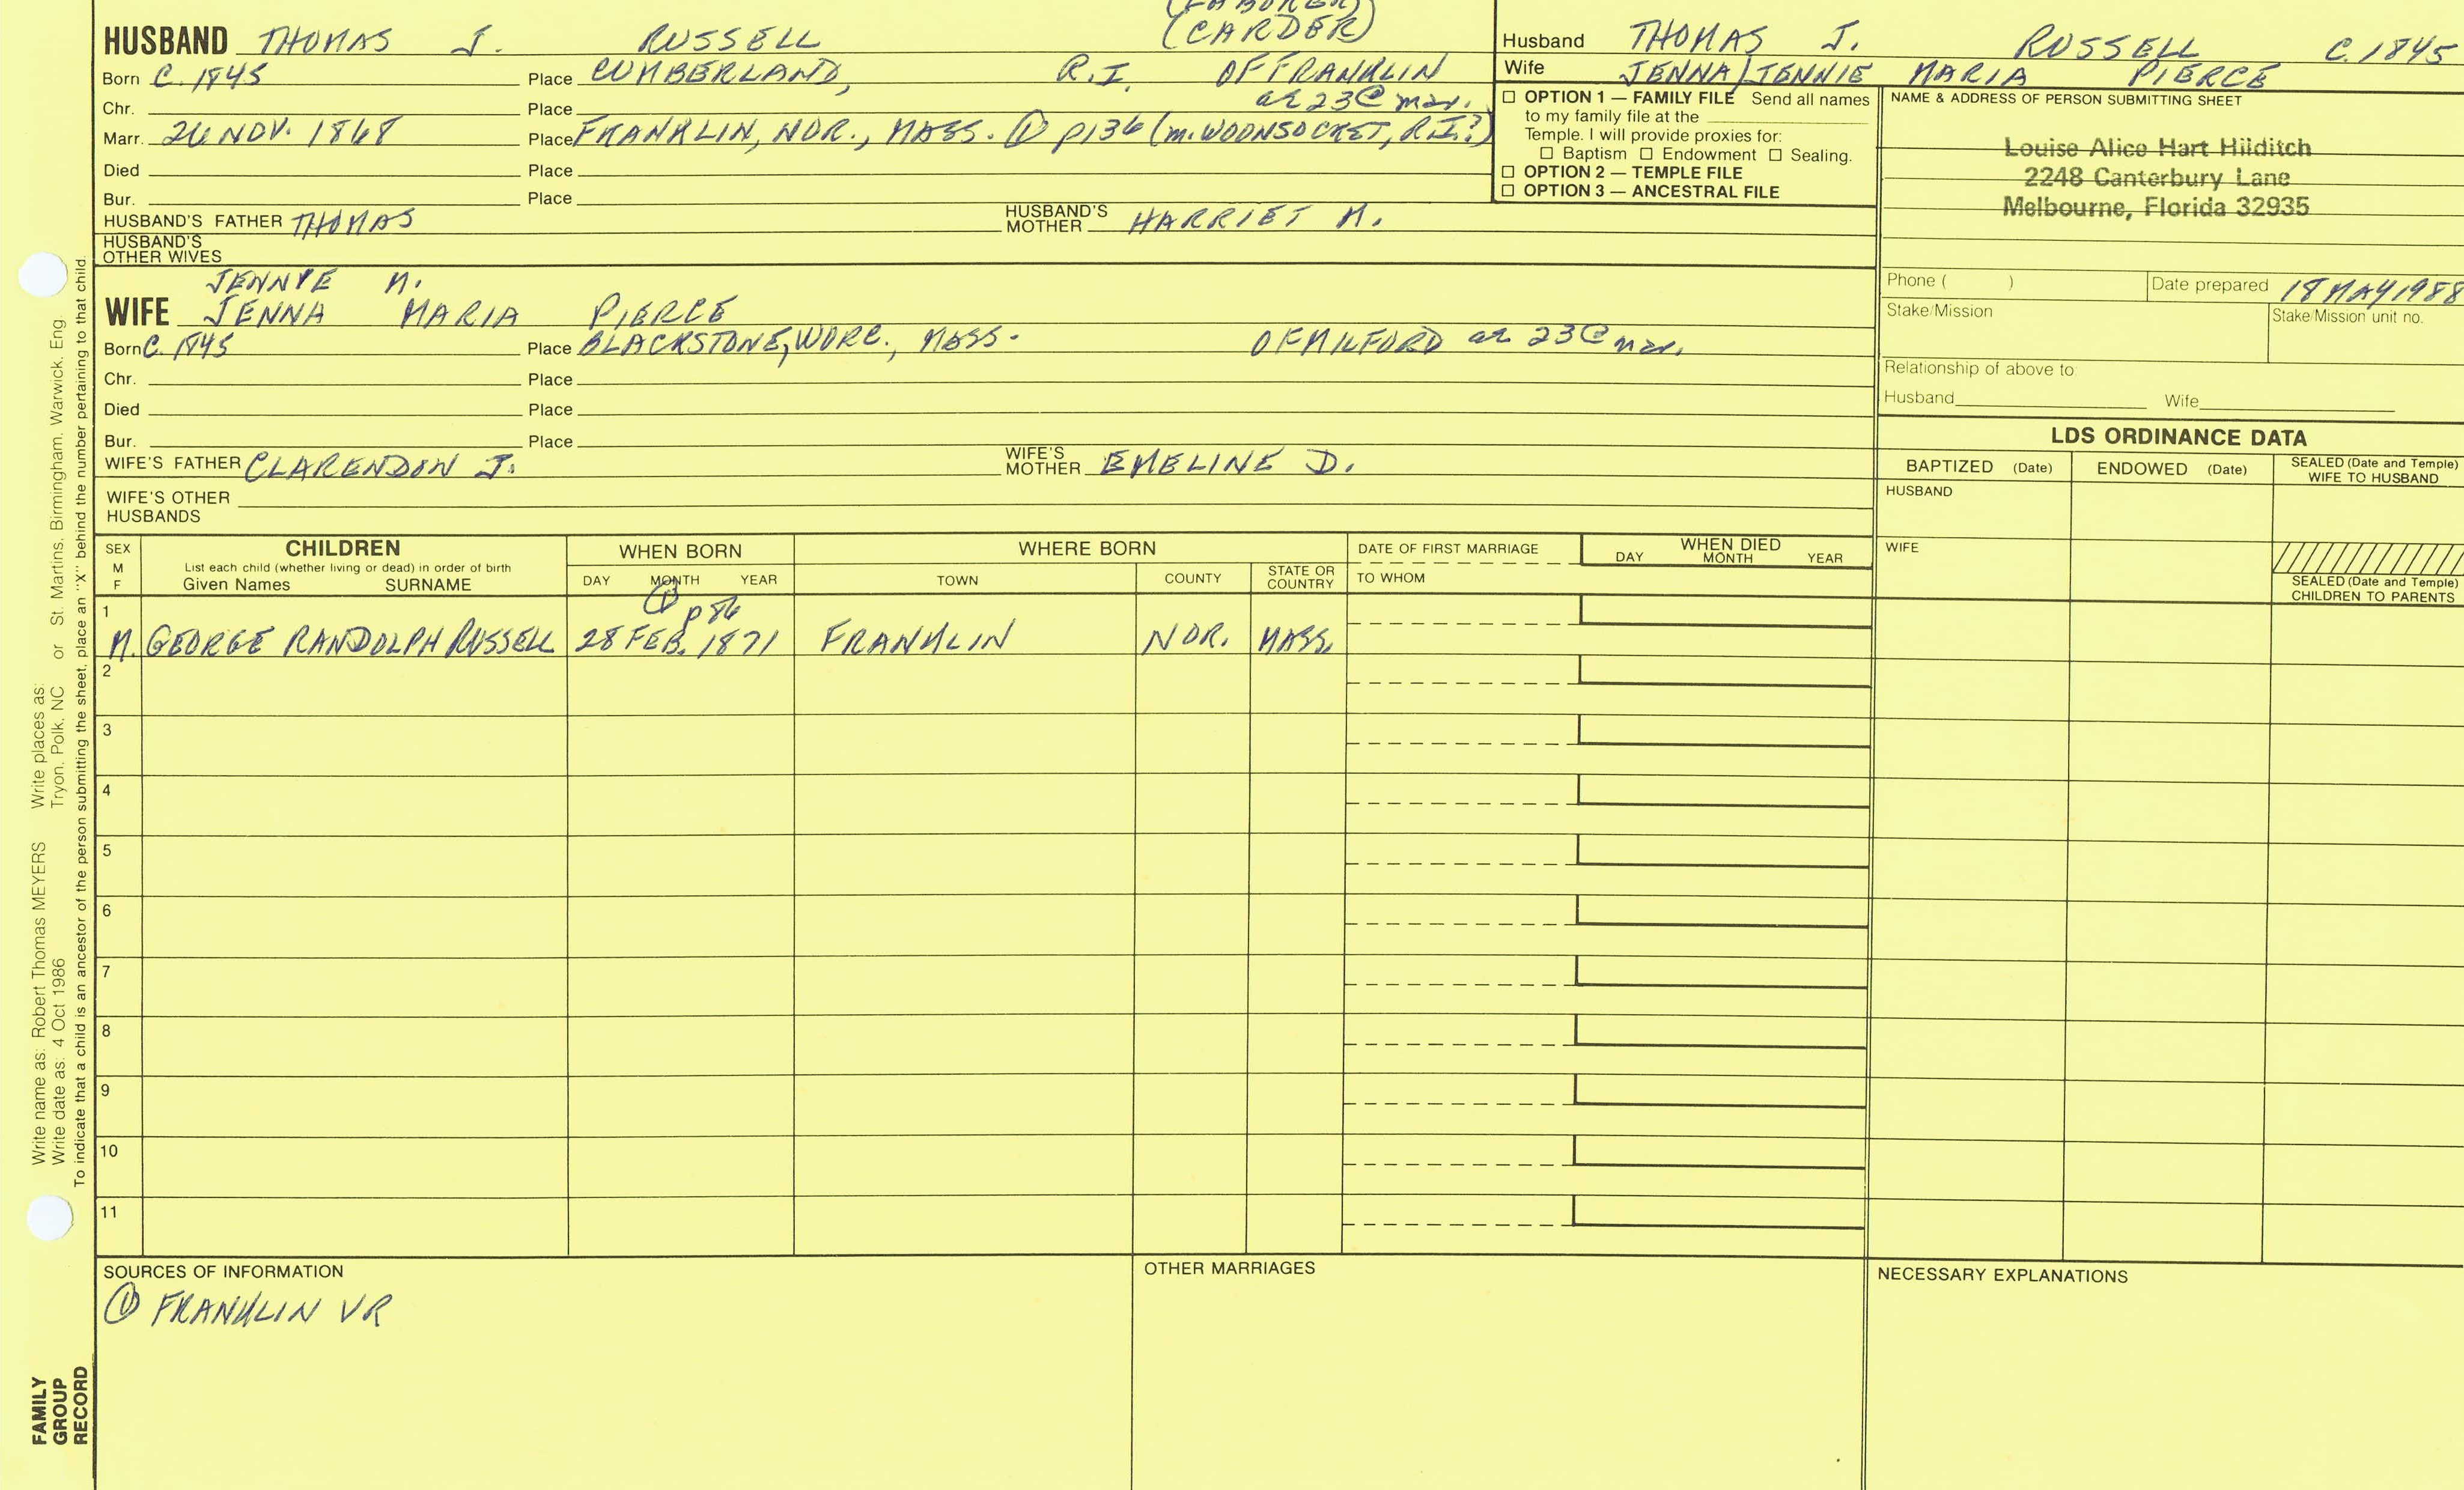 (LABORER)
HUSBAND THOMAS J. RUSSELL (CARDER)
Born C. 1845 Place CUMBERLAND, R.I. OF FRANKLIN
Chr. Place ae 23 @ mar.
Marr. 26 NOV. 1868 Place FRANKLIN, NOR., MASS. ① p136 (m. WOONSOCKET, R.I.?)
Died Place
Bur. Place
HUSBAND'S FATHER THOMAS HUSBAND'S MOTHER HARRIET M.
HUSBAND'S OTHER WIVES
JENNIE M.
WIFE JENNA MARIA PIERCE
Born C. 1845 Place BLACKSTONE, WORC., MASS. OF MILFORD ae 23 @ mar.
Chr. Place
Died Place
Bur. Place
WIFE'S FATHER CLARENDON J. WIFE'S MOTHER EMELINE D.
WIFE'S OTHER HUSBANDS
Husband THOMAS J. RUSSELL C. 1845
Wife JENNA/JENNIE MARIA PIERCE
☐ OPTION 1 — FAMILY FILE Send all names
to my family file at the
Temple. I will provide proxies for:
☐ Baptism ☐ Endowment ☐ Sealing.
☐ OPTION 2 — TEMPLE FILE
☐ OPTION 3 — ANCESTRAL FILE
NAME & ADDRESS OF PERSON SUBMITTING SHEET
Louise Alice Hart Hilditch
2248 Canterbury Lane
Melbourne, Florida 32935
Phone ( ) Date prepared 18 MAY 1988
Stake/Mission Stake/Mission unit no.
Relationship of above to:
Husband Wife
LDS ORDINANCE DATA
BAPTIZED (Date) ENDOWED (Date) SEALED (Date and Temple) WIFE TO HUSBAND
HUSBAND
WIFE
SEALED (Date and Temple)
CHILDREN TO PARENTS
SEX M F
CHILDREN
List each child (whether living or dead) in order of birth
Given Names SURNAME
WHEN BORN
DAY MONTH YEAR
WHERE BORN
TOWN COUNTY STATE OR COUNTRY
DATE OF FIRST MARRIAGE
TO WHOM
WHEN DIED
DAY MONTH YEAR
1 ① p86
M. GEORGE RANDOLPH RUSSELL 28 FEB. 1871 FRANKLIN NOR. MASS.
2
3
4
5
6
7
8
9
10
11
SOURCES OF INFORMATION
① FRANKLIN VR
OTHER MARRIAGES
NECESSARY EXPLANATIONS
Write name as: Robert Thomas MEYERS Write places as:
Write date as: 4 Oct 1986 Tryon, Polk, NC or St. Martins, Birmingham, Warwick, Eng.
To indicate that a child is an ancestor of the person submitting the sheet, place an "X" behind the number pertaining to that child.
FAMILY
GROUP
RECORD